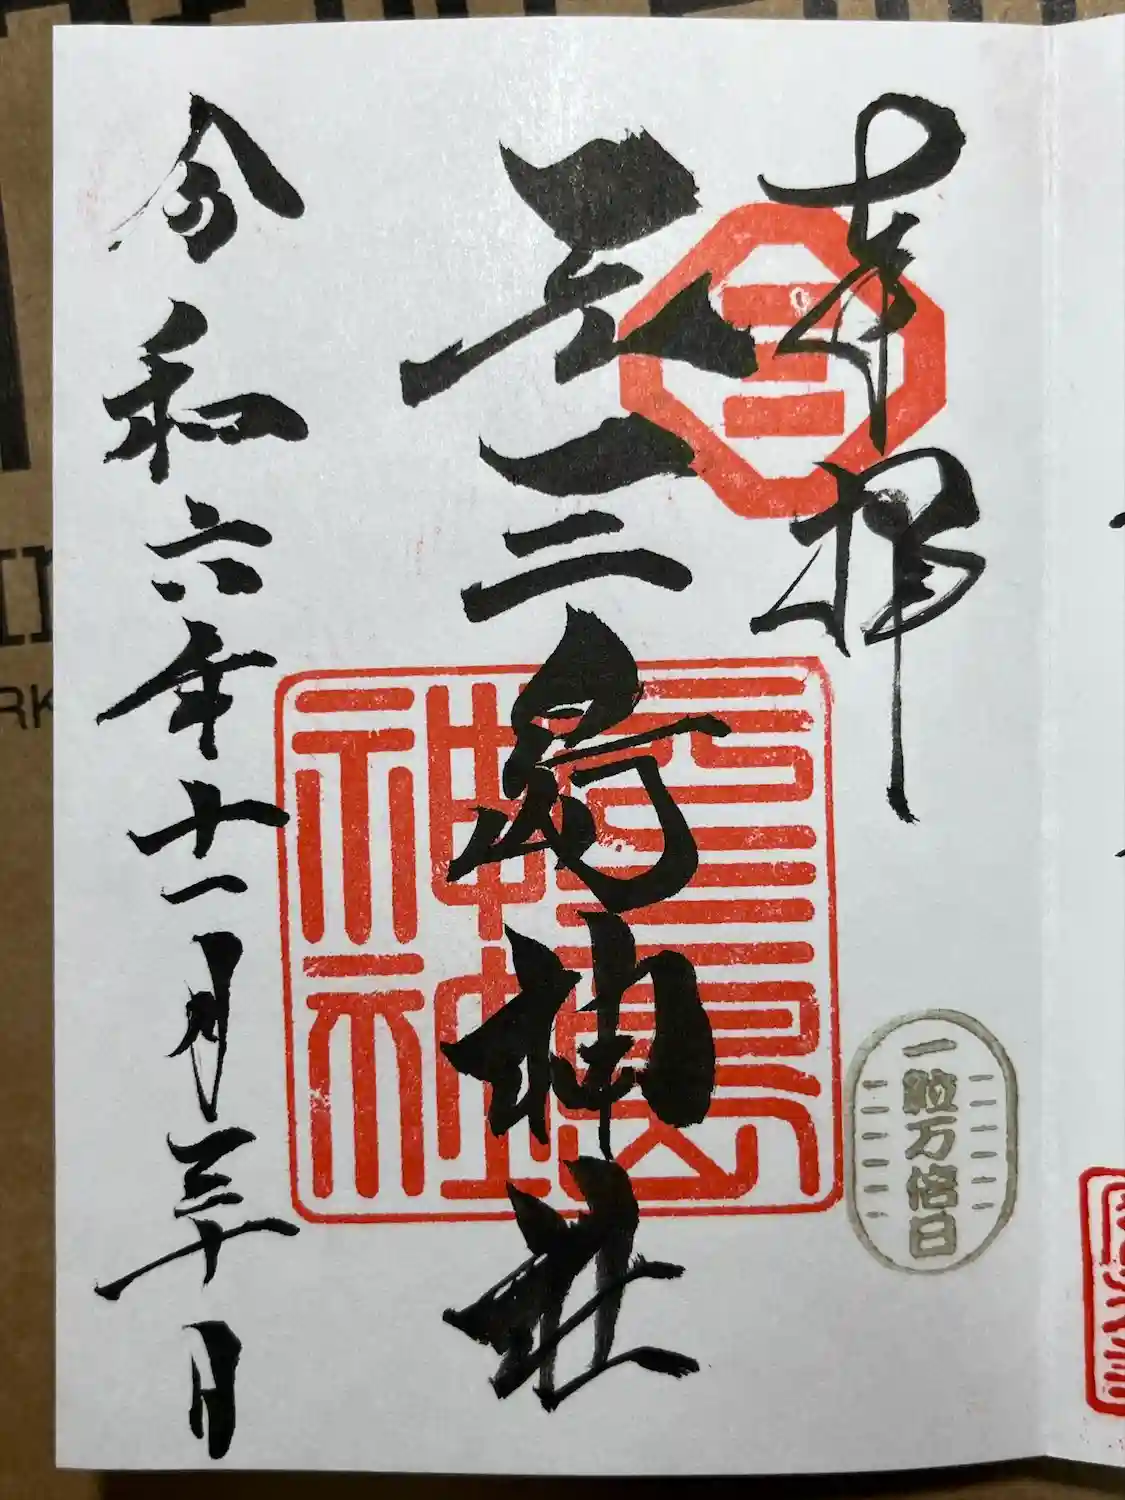 奉拝
三
元三島神社
元三島
神社
令和六年十一月三十日
一粒万倍日